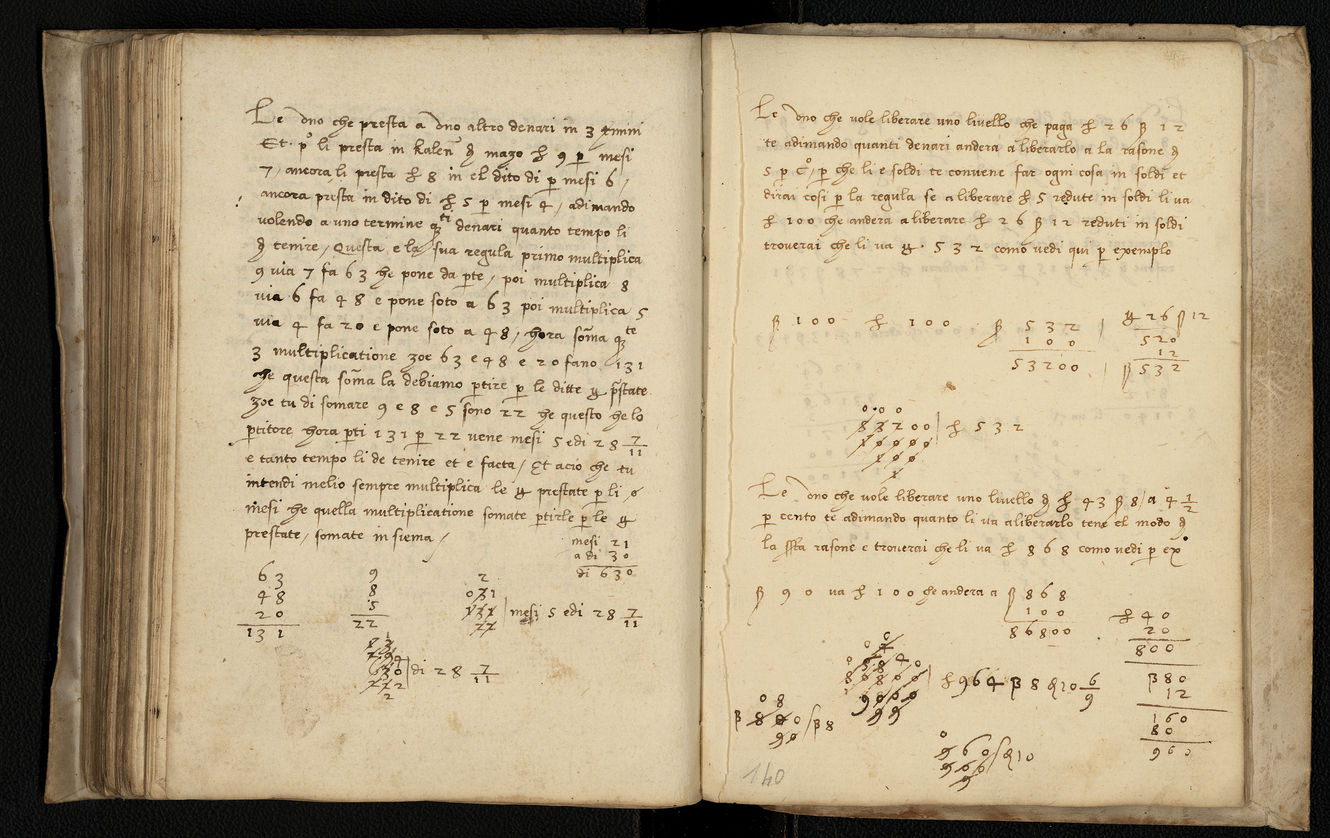 Le uno che presta a uno altro denari in 3 termini
Et. po li presta in kalen di mazo £ 9 p mesi
7 / ancora li presta £ 8 in el dito di p mesi 6 /
ancora presta in dito di £ 5 p mesi 4 / adimando
volendo a uno termine denari quanto tempo li
di tenire / Questa e la sua regula primo multiplica
9 via 7 fa 63 he pone da pte / poi multiplica 8
via 6 fa 48 e pone soto a 63 poi multiplica 5
via 4 fa 20 e pone soto a 48 / hora soma
3 multiplicatione zoe 63 e 48 e 20 fano 131
he questa soma la debiamo ptire p le ditte pstate
zoe tu di somare 9 e 8 e 5 sono 22 he questo he lo
ptitore hora pti 131 p 22 vene mesi 5 e di 28 7/11
e tanto tempo li de tenire et e facta / Et acio che tu
intendi melio sempre multiplica le prestate p li
mesi he quella multiplicatione somate ptirle p le
prestate / somate in siema /
mesi 21
a di 30
di 630
63
48
20
131
9
8
5
22
mesi 5 e di 28 7/11
di 28 7/11
Le uno che vole liberare uno livello che paga £ 26 β 12
te adimando quanti denari andera a liberarlo a la rasone di
5 p co / p che li e soldi te conviene far ogni cosa in soldi et
dirai cosi p la regula se a liberare £ 5 redute in soldi li va
£ 100 che andera a liberare £ 26 β 12 reduti in soldi
troverai che li va 532 como vedi qui p exemplo
β 100 £ 100
β 532
100
53200
26 β 12
520
12
β 532
£ 532
Le uno che vole liberare uno livello di £ 43 β 8 / a 4 1/2
p cento te adimando quanto li va a liberarlo tene el modo di
la rasone e troverai che li va £ 868 como vedi p ex
β 90 va £ 100 che andera a β 868
100
86800
£ 40
20
800
β 80
12
160
80
960
£ 964 β 8 10 6/9
β 8
10
140